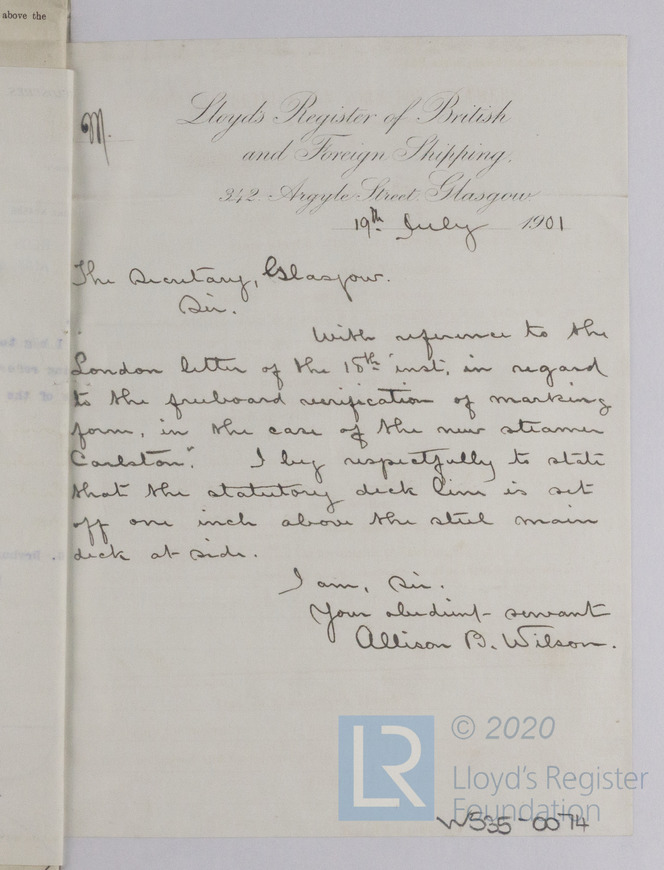 above the
M.
Lloyds Register of British
and Foreign Shipping.
342. Argyle Street. Glasgow
19th July 1901
The Secretary, Glasgow.
Sir.
With reference to the
London letter of the 18th inst, in regard
to the freeboard verification of marking
form, in the case of the new steamer
Carlston". I beg respectfully to state
that the statutory deck line is set
off one inch above the steel main
deck at side.
I am, Sir.
Your obedient servant
Allison B. Wilson.
LR
© 2020
Lloyd's Register
Foundation
W535-0074